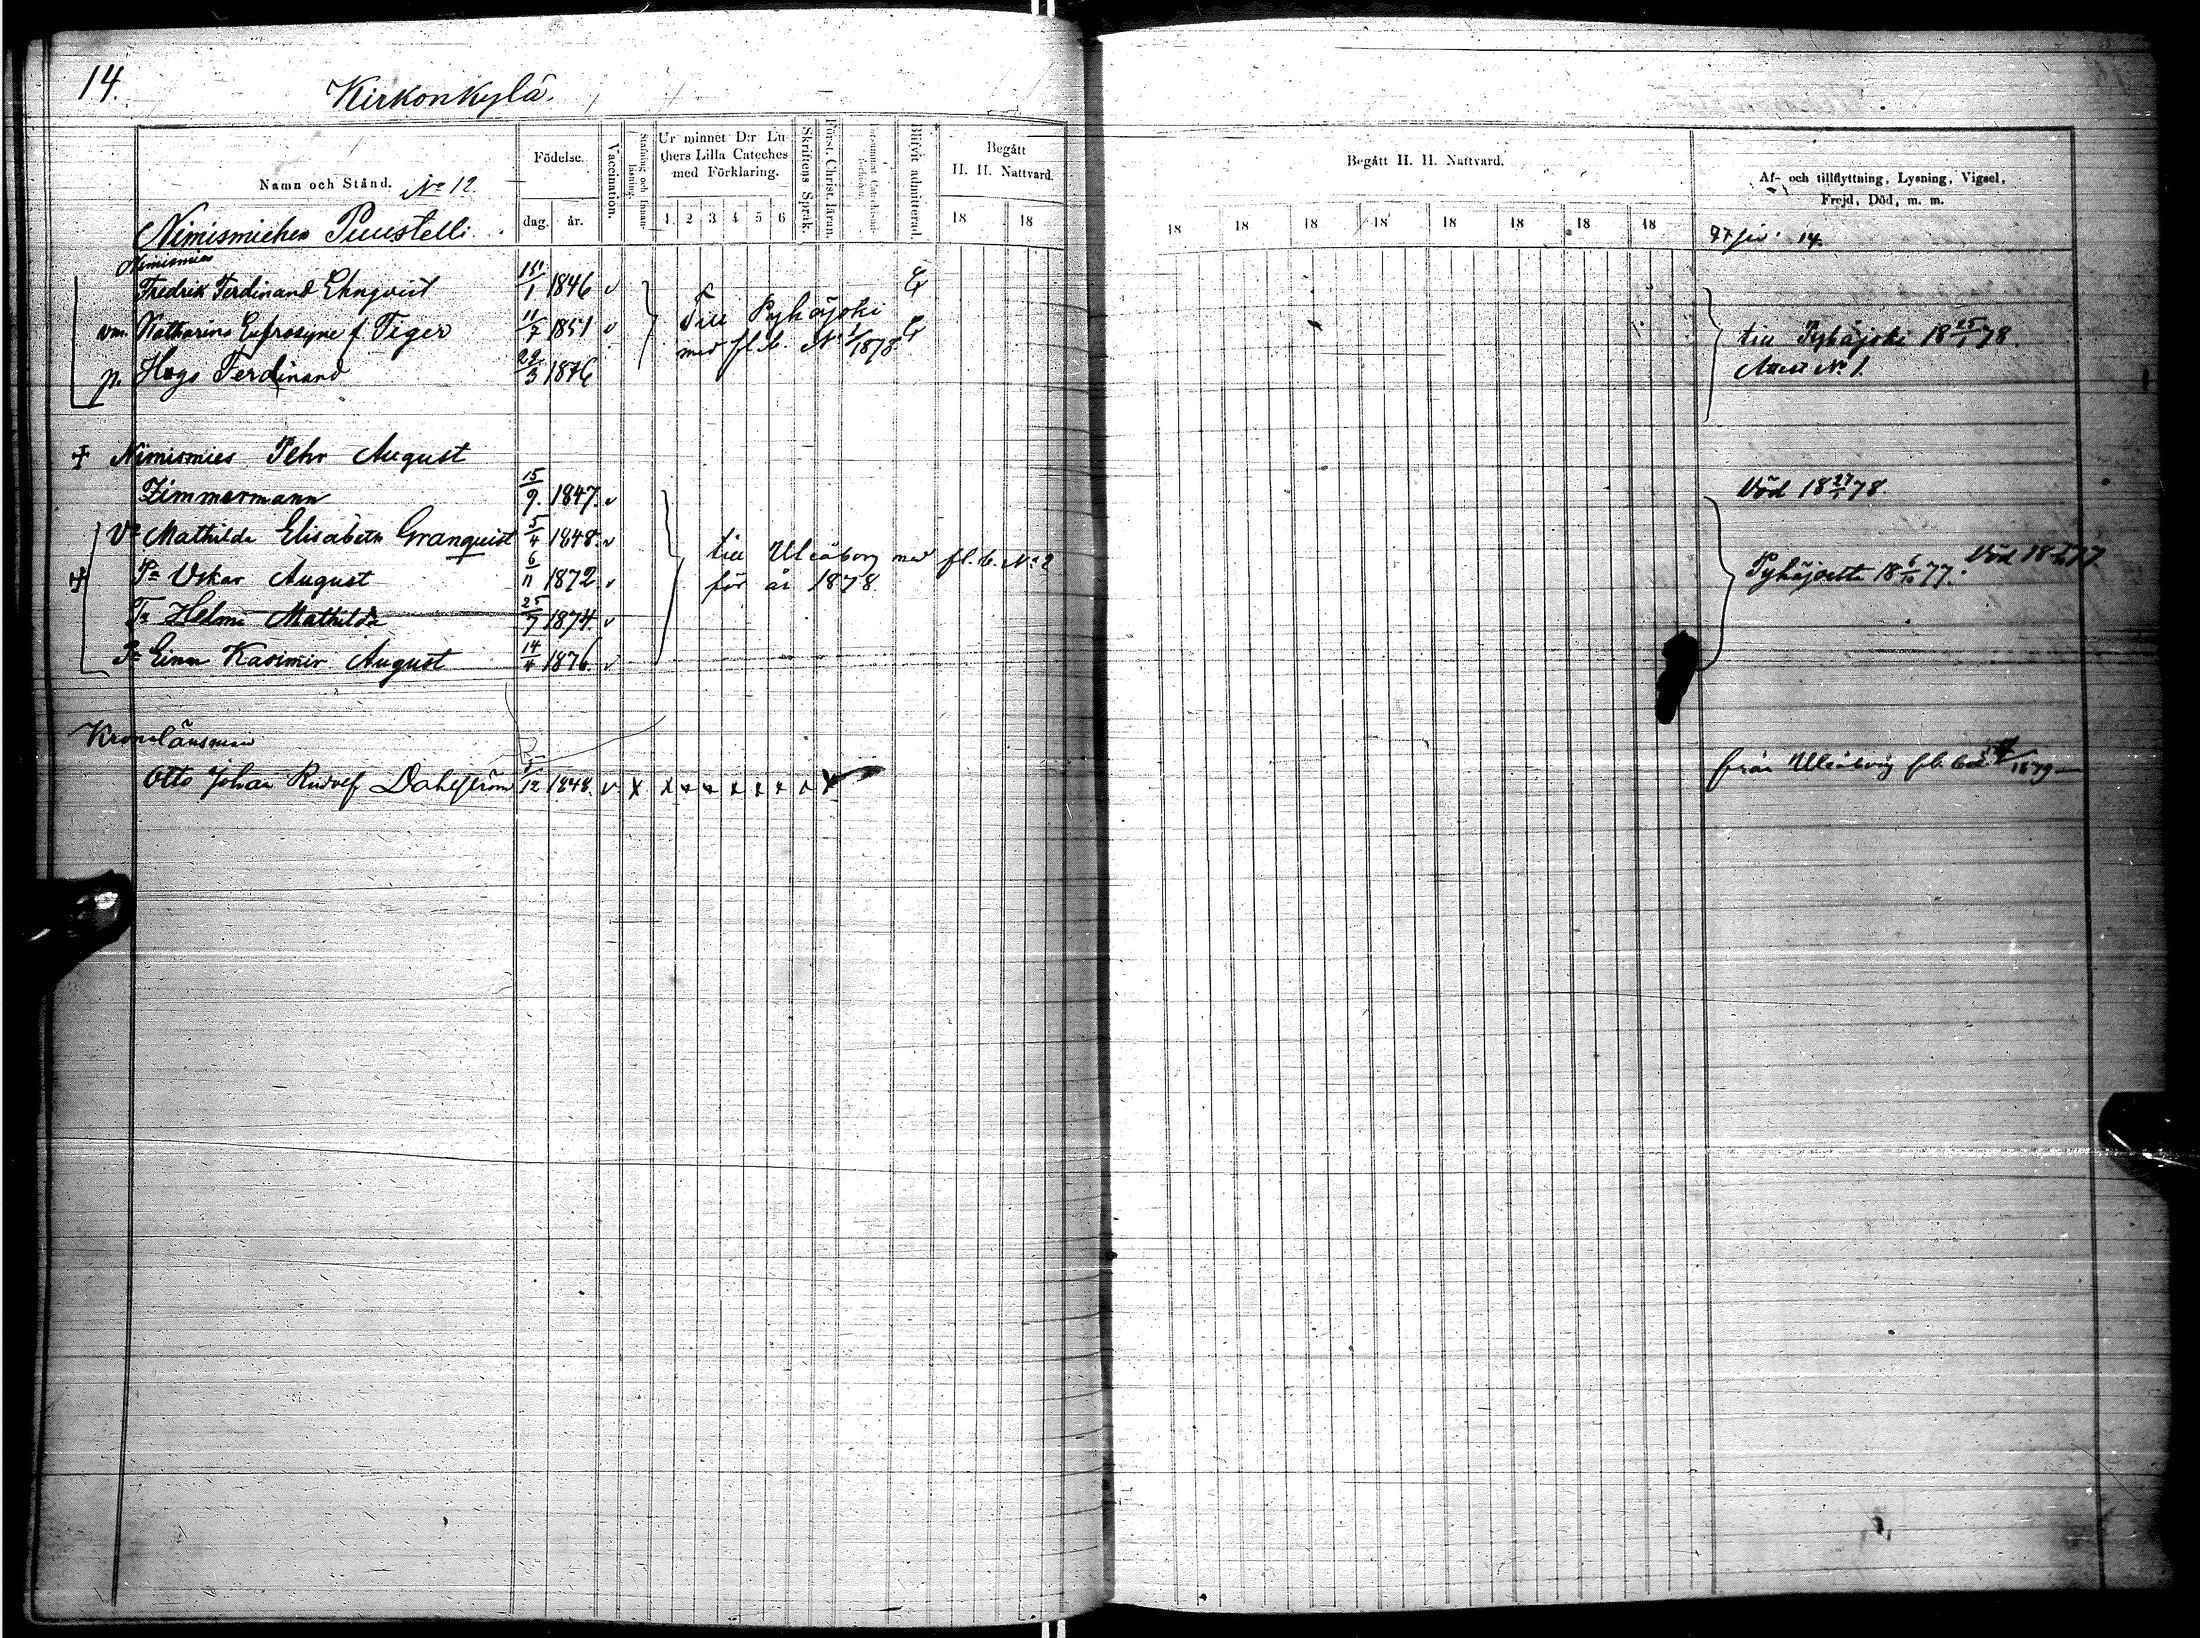 14.
Kirkonkylä.
Namn och Stånd. No 12.
Födelse.
dag. år.
Vaccination.
Ur minnet D:r Lu-
thers Lilla Cateches
med Förklaring.
1. 2 3 4 5 6
Skriftens Språk.
Först. Christ. läran.
Blifvit admitterad.
Begått
H. H. Nattvard.
18 18
Begått H. H. Nattvard.
18 18 18 18 18 18 18 18
Af- och tillflyttning, Lysning, Vigsel,
Frejd, Död, m. m.
Nimismiehen Puustelli.
14.
Nimismies
Fredrik Ferdinand Ehnqvist 15/1 1846 v
vm. Katharina Eufrosyne f. Teger 11/7 1851 v
p. Hugo Ferdinand 22/3 1876
Till Pyhäjoki
med fl.b. No 1/1878
till Pyhäjoki 18 25/1 78.
Attest No 1.
† Nimismies Pehr August
Zimmermann 15/9. 1847. v
Död 18 27/ 78.
Va Mathilda Elisabeth Granquist 5/4 1848. v
† Pa Oskar August 6/11 1872 v
Tr Helmi Mathilda 25/7 1874 v
Pa Einar Kasimir August 14/4 1876. v
till Uleåborg med fl.b. No 2
för år 1878.
Pyhäjoelta 18 6/10 77. Död 18 77
Kronolänsman
Otto Johan Rudolf Dahlström 5/12 1848. v x x x x x x x x x
från Uleåborg fl.bet. /1879